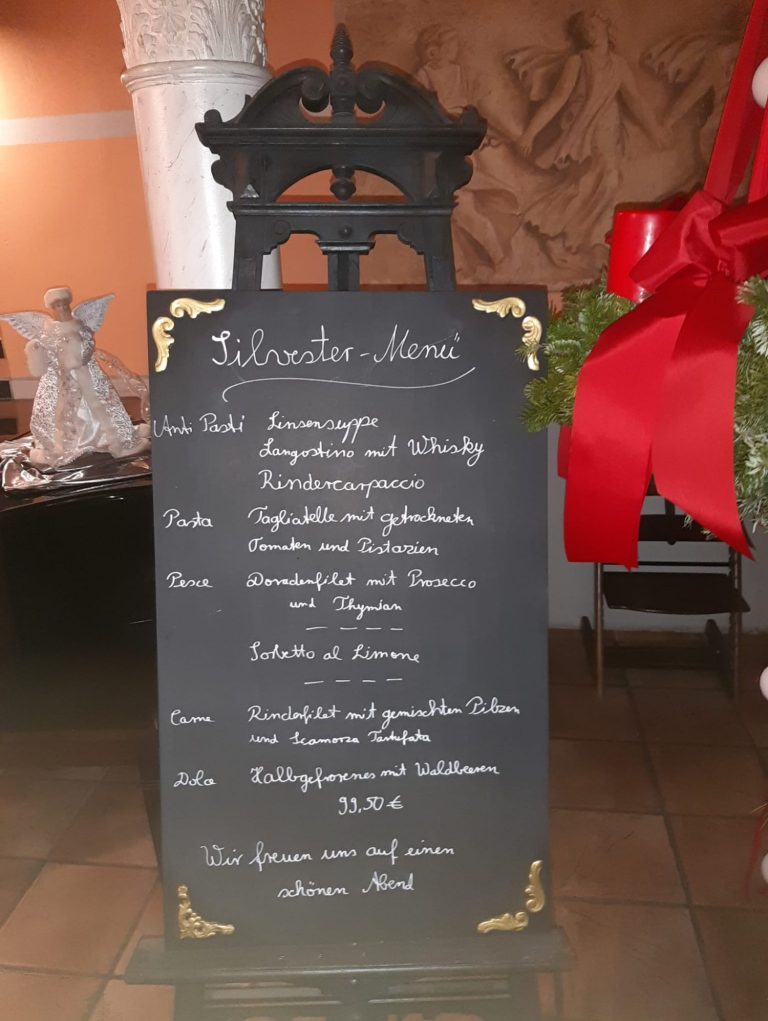 Silvester-Menü
Anti Pasti Linsensuppe
Langostino mit Whisky
Rindercarpaccio
Pasta Tagliatelle mit getrockneten
Tomaten und Pistazien
Pesce Doradenfilet mit Prosecco
und Thymian
Sorbetto al Limone
Carne Rinderfilet mit gemischten Pilzen
und Scamorza Tartufata
Dolce Halbgefrorenes mit Waldbeeren
99,50 €
Wir freuen uns auf einen
schönen Abend